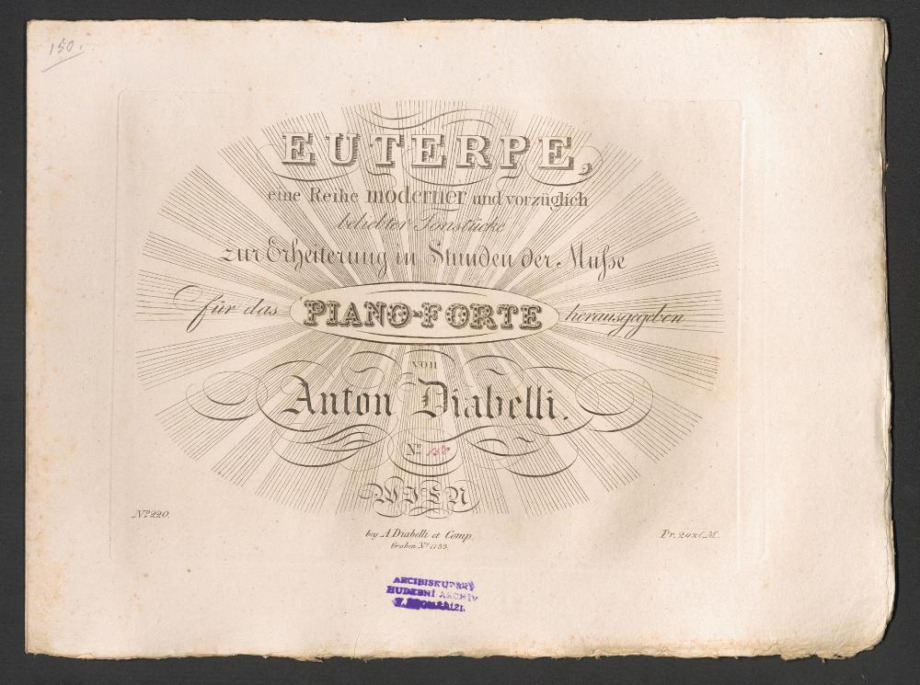 150.
EUTERPE,
eine Reihe moderner und vorzüglich
beliebter Tonstücke
zur Erheiterung in Stunden der Muſse
für das PIANO-FORTE herausgegeben
von
Anton Diabelli.
Nº
WIEN
Nº 220.
bey A. Diabelli et Comp.
Graben Nº 1133.
Pr. 24 x C.M.
ARCIBISKUPSKÝ
HUDEBNÍ ARCHIV
V KROMĚŘÍŽI.